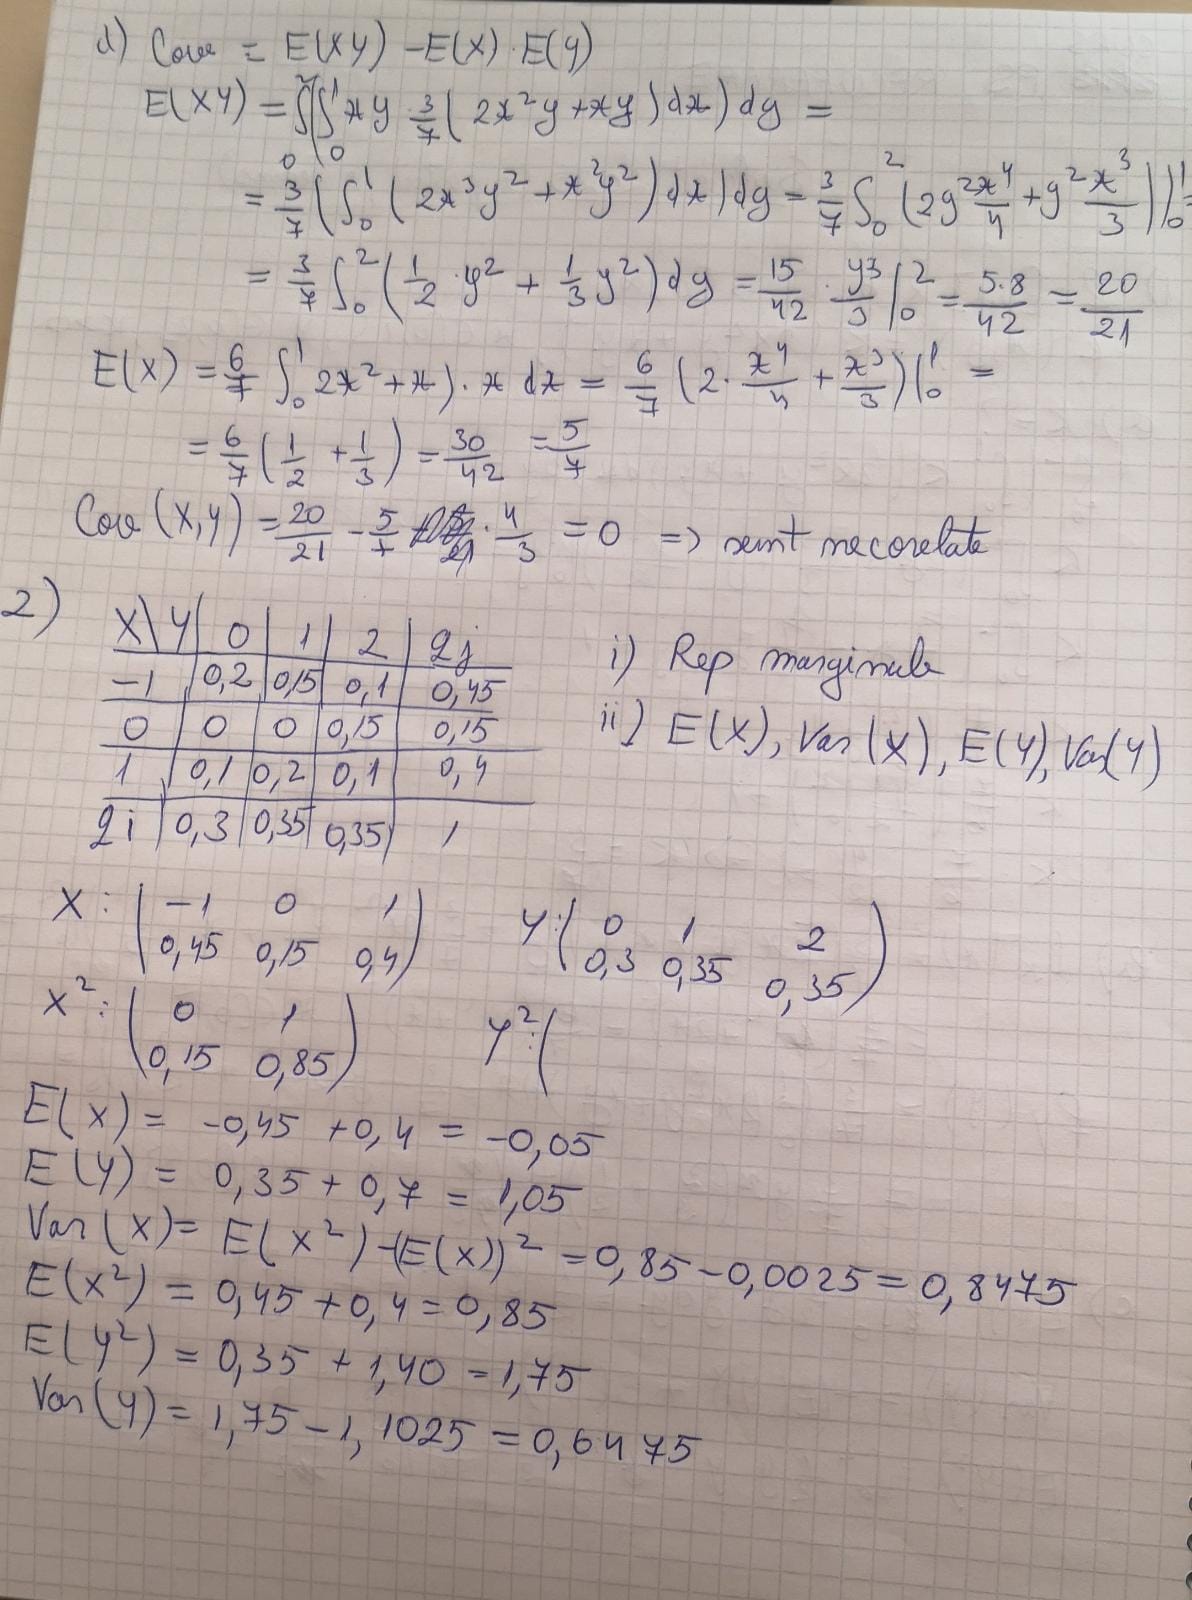 d) Cov = E(XY) - E(X) · E(Y)
E(XY) = ∫₀²(∫₀¹ xy 3/7 (2x²y + xy) dx) dy =
= 3/7 (∫₀¹ (2x³y² + x²y²) dx) dy = 3/7 ∫₀² (2y² x⁴/4 + y² x³/3)|₀¹ =
= 3/7 ∫₀² (1/2 · y² + 1/3 y²) dy = 15/42 · y³/3 |₀² = 5·8/42 = 20/21
E(X) = 6/7 ∫₀¹ 2x² + x) · x dx = 6/7 (2 · x⁴/4 + x³/3)|₀¹ =
= 6/7 (1/2 + 1/3) = 30/42 = 5/7
Cov (X,Y) = 20/21 - 5/7 · 4/3 = 0 => sunt necorelate
2)
X\Y 0 1 2 qj
-1 0,2 0,15 0,1 0,45
0 0 0 0,15 0,15
1 0,1 0,2 0,1 0,4
qi 0,3 0,35 0,35 1
i) Rep marginale
ii) E(X), Var (X), E(Y), Var(Y)
X : ( -1 0 1
0,45 0,15 0,4 )
Y : ( 0 1 2
0,3 0,35 0,35 )
X² : ( 0 1
0,15 0,85 )
Y² : (
E(X) = -0,45 + 0,4 = -0,05
E(Y) = 0,35 + 0,7 = 1,05
Var (X) = E(X²) - (E(X))² = 0,85 - 0,0025 = 0,8475
E(X²) = 0,45 + 0,4 = 0,85
E(Y²) = 0,35 + 1,40 = 1,75
Var (Y) = 1,75 - 1,1025 = 0,6475